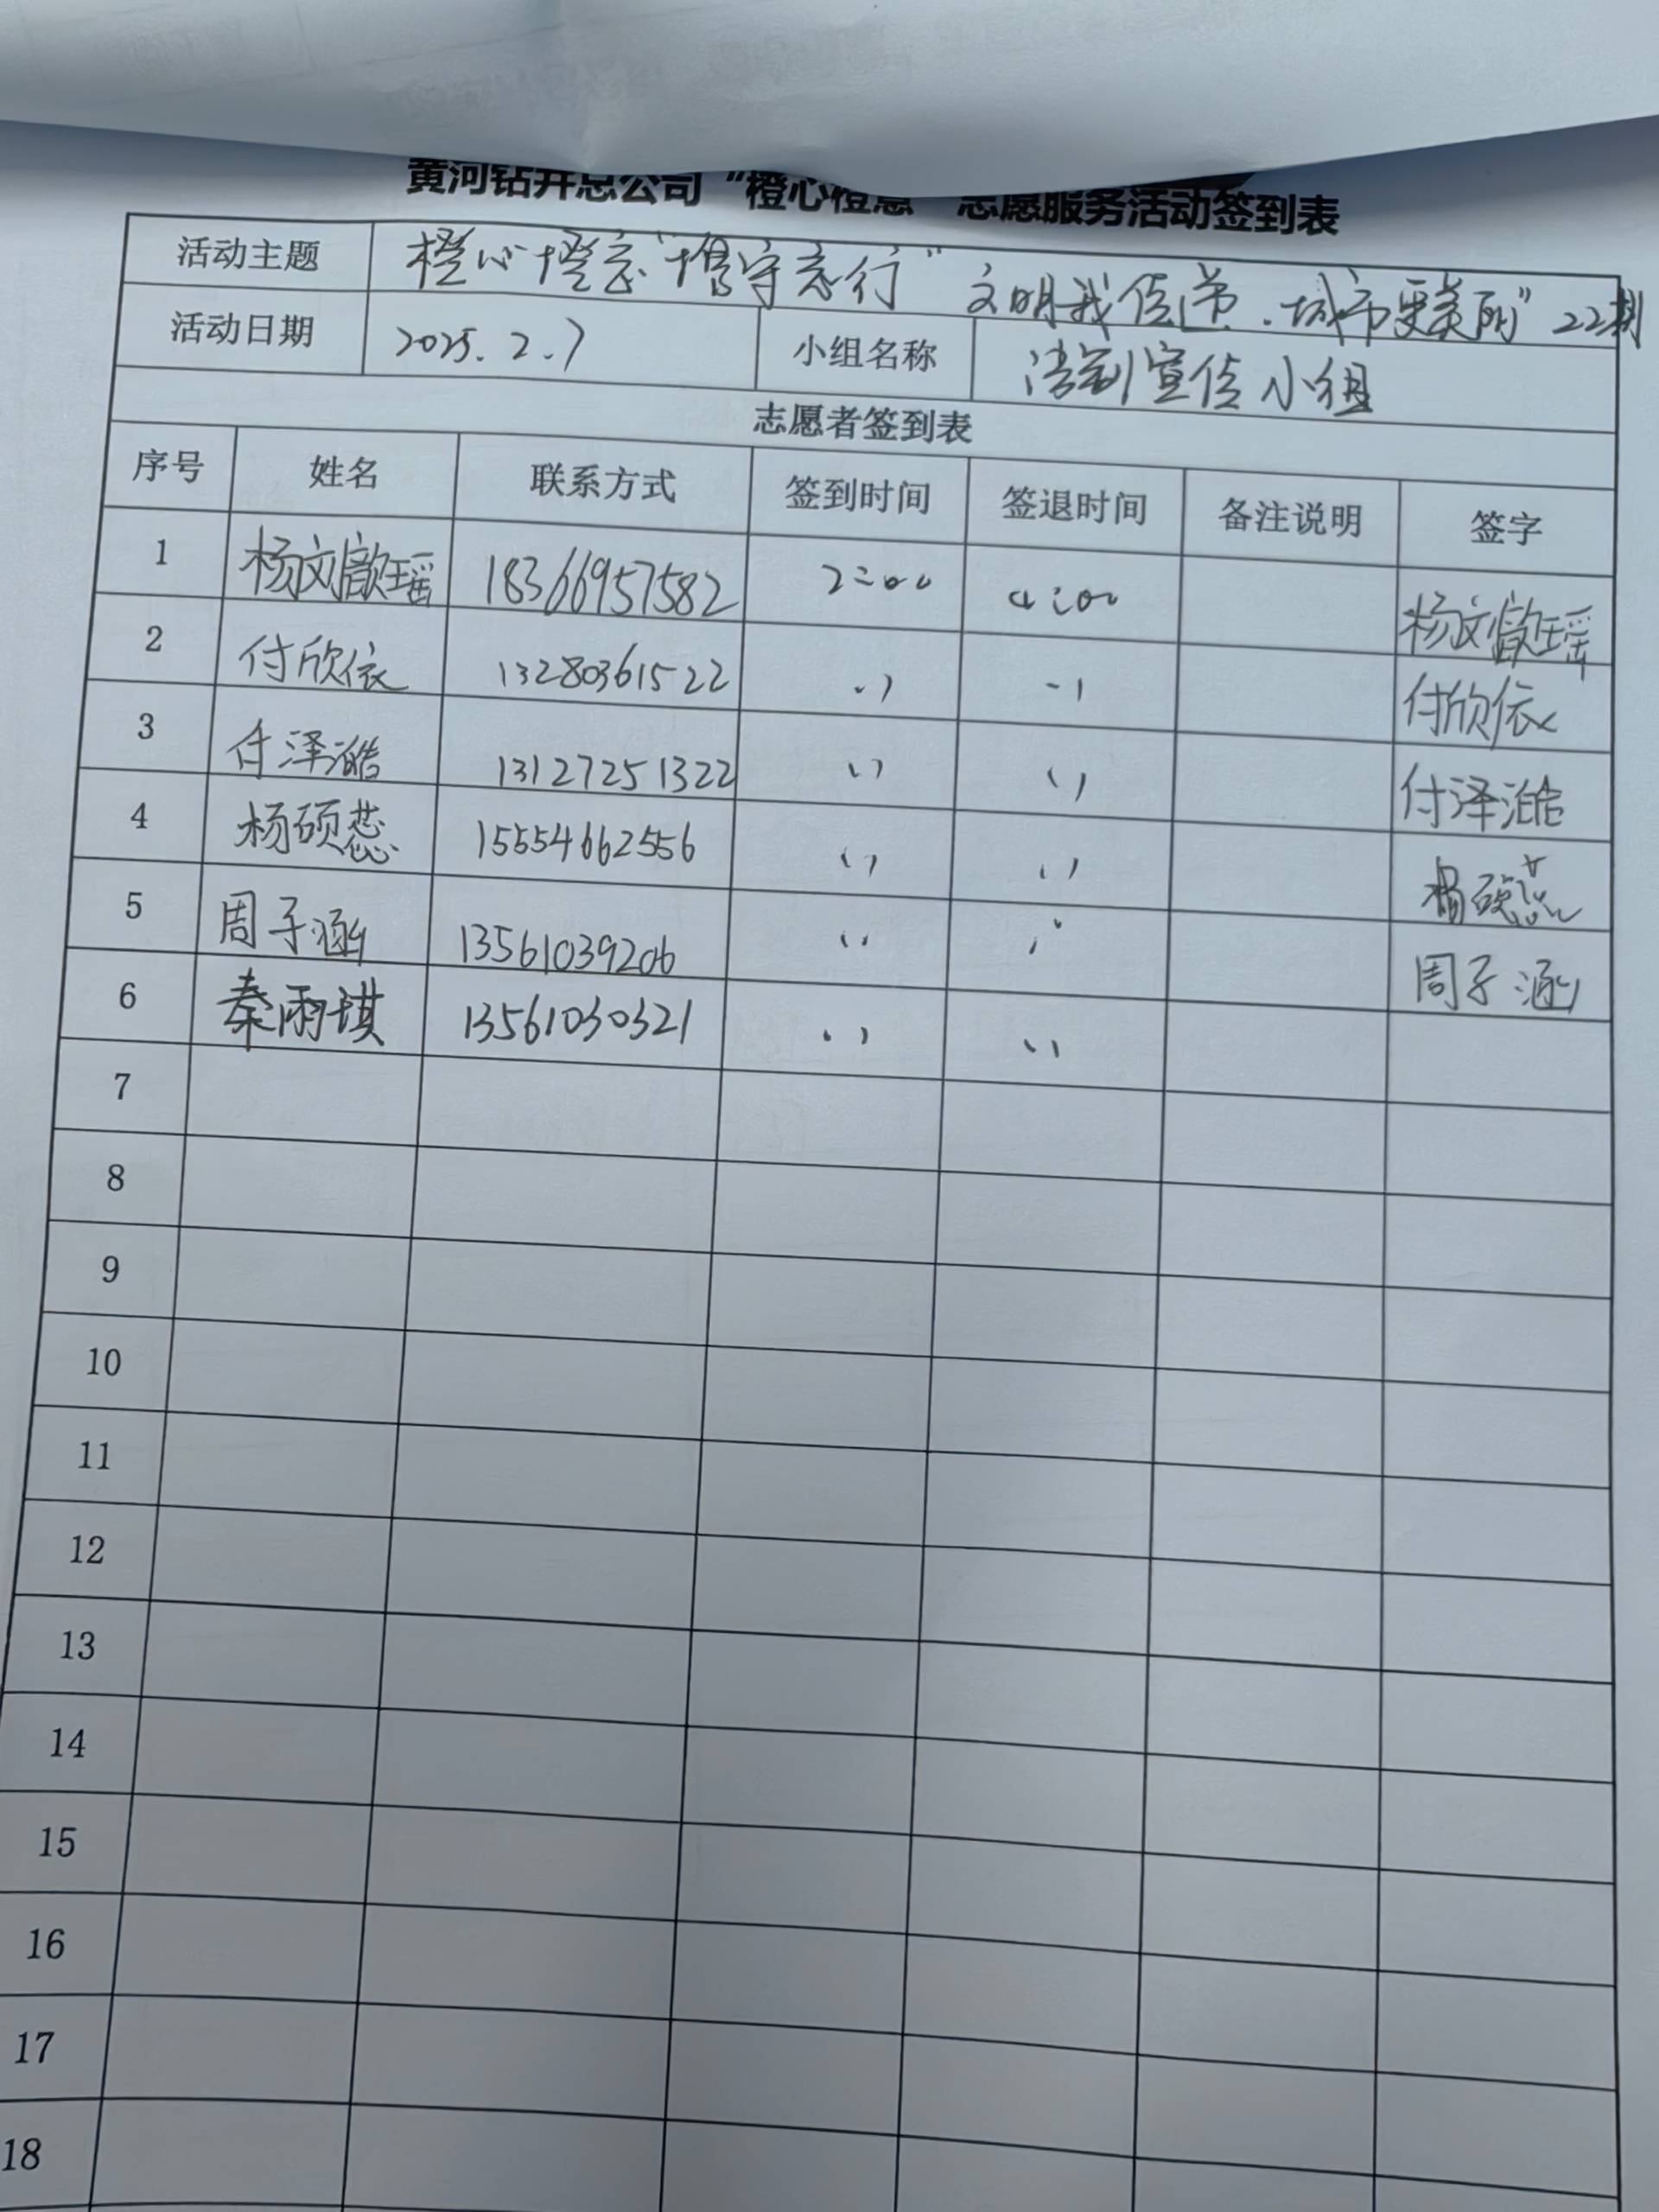 黄河钻井总公司“橙心橙意”志愿服务活动签到表
活动主题 橙心橙意“携守志行”文明我传递.城市更美丽”22期
活动日期 2025.2.7 小组名称 法制宣传小组
志愿者签到表
序号 姓名 联系方式 签到时间 签退时间 备注说明 签字
1 杨文歆瑶 18366957582 2:00 4:00 杨文歆瑶
2 付欣依 13280361522 〃 〃 付欣依
3 付泽皓 13127251322 〃 〃 付泽皓
4 杨硕蕊 15554662556 〃 〃 杨硕蕊
5 周子涵 13561039206 〃 〃 周子涵
6 秦雨琪 13561030321 〃 〃
7
8
9
10
11
12
13
14
15
16
17
18